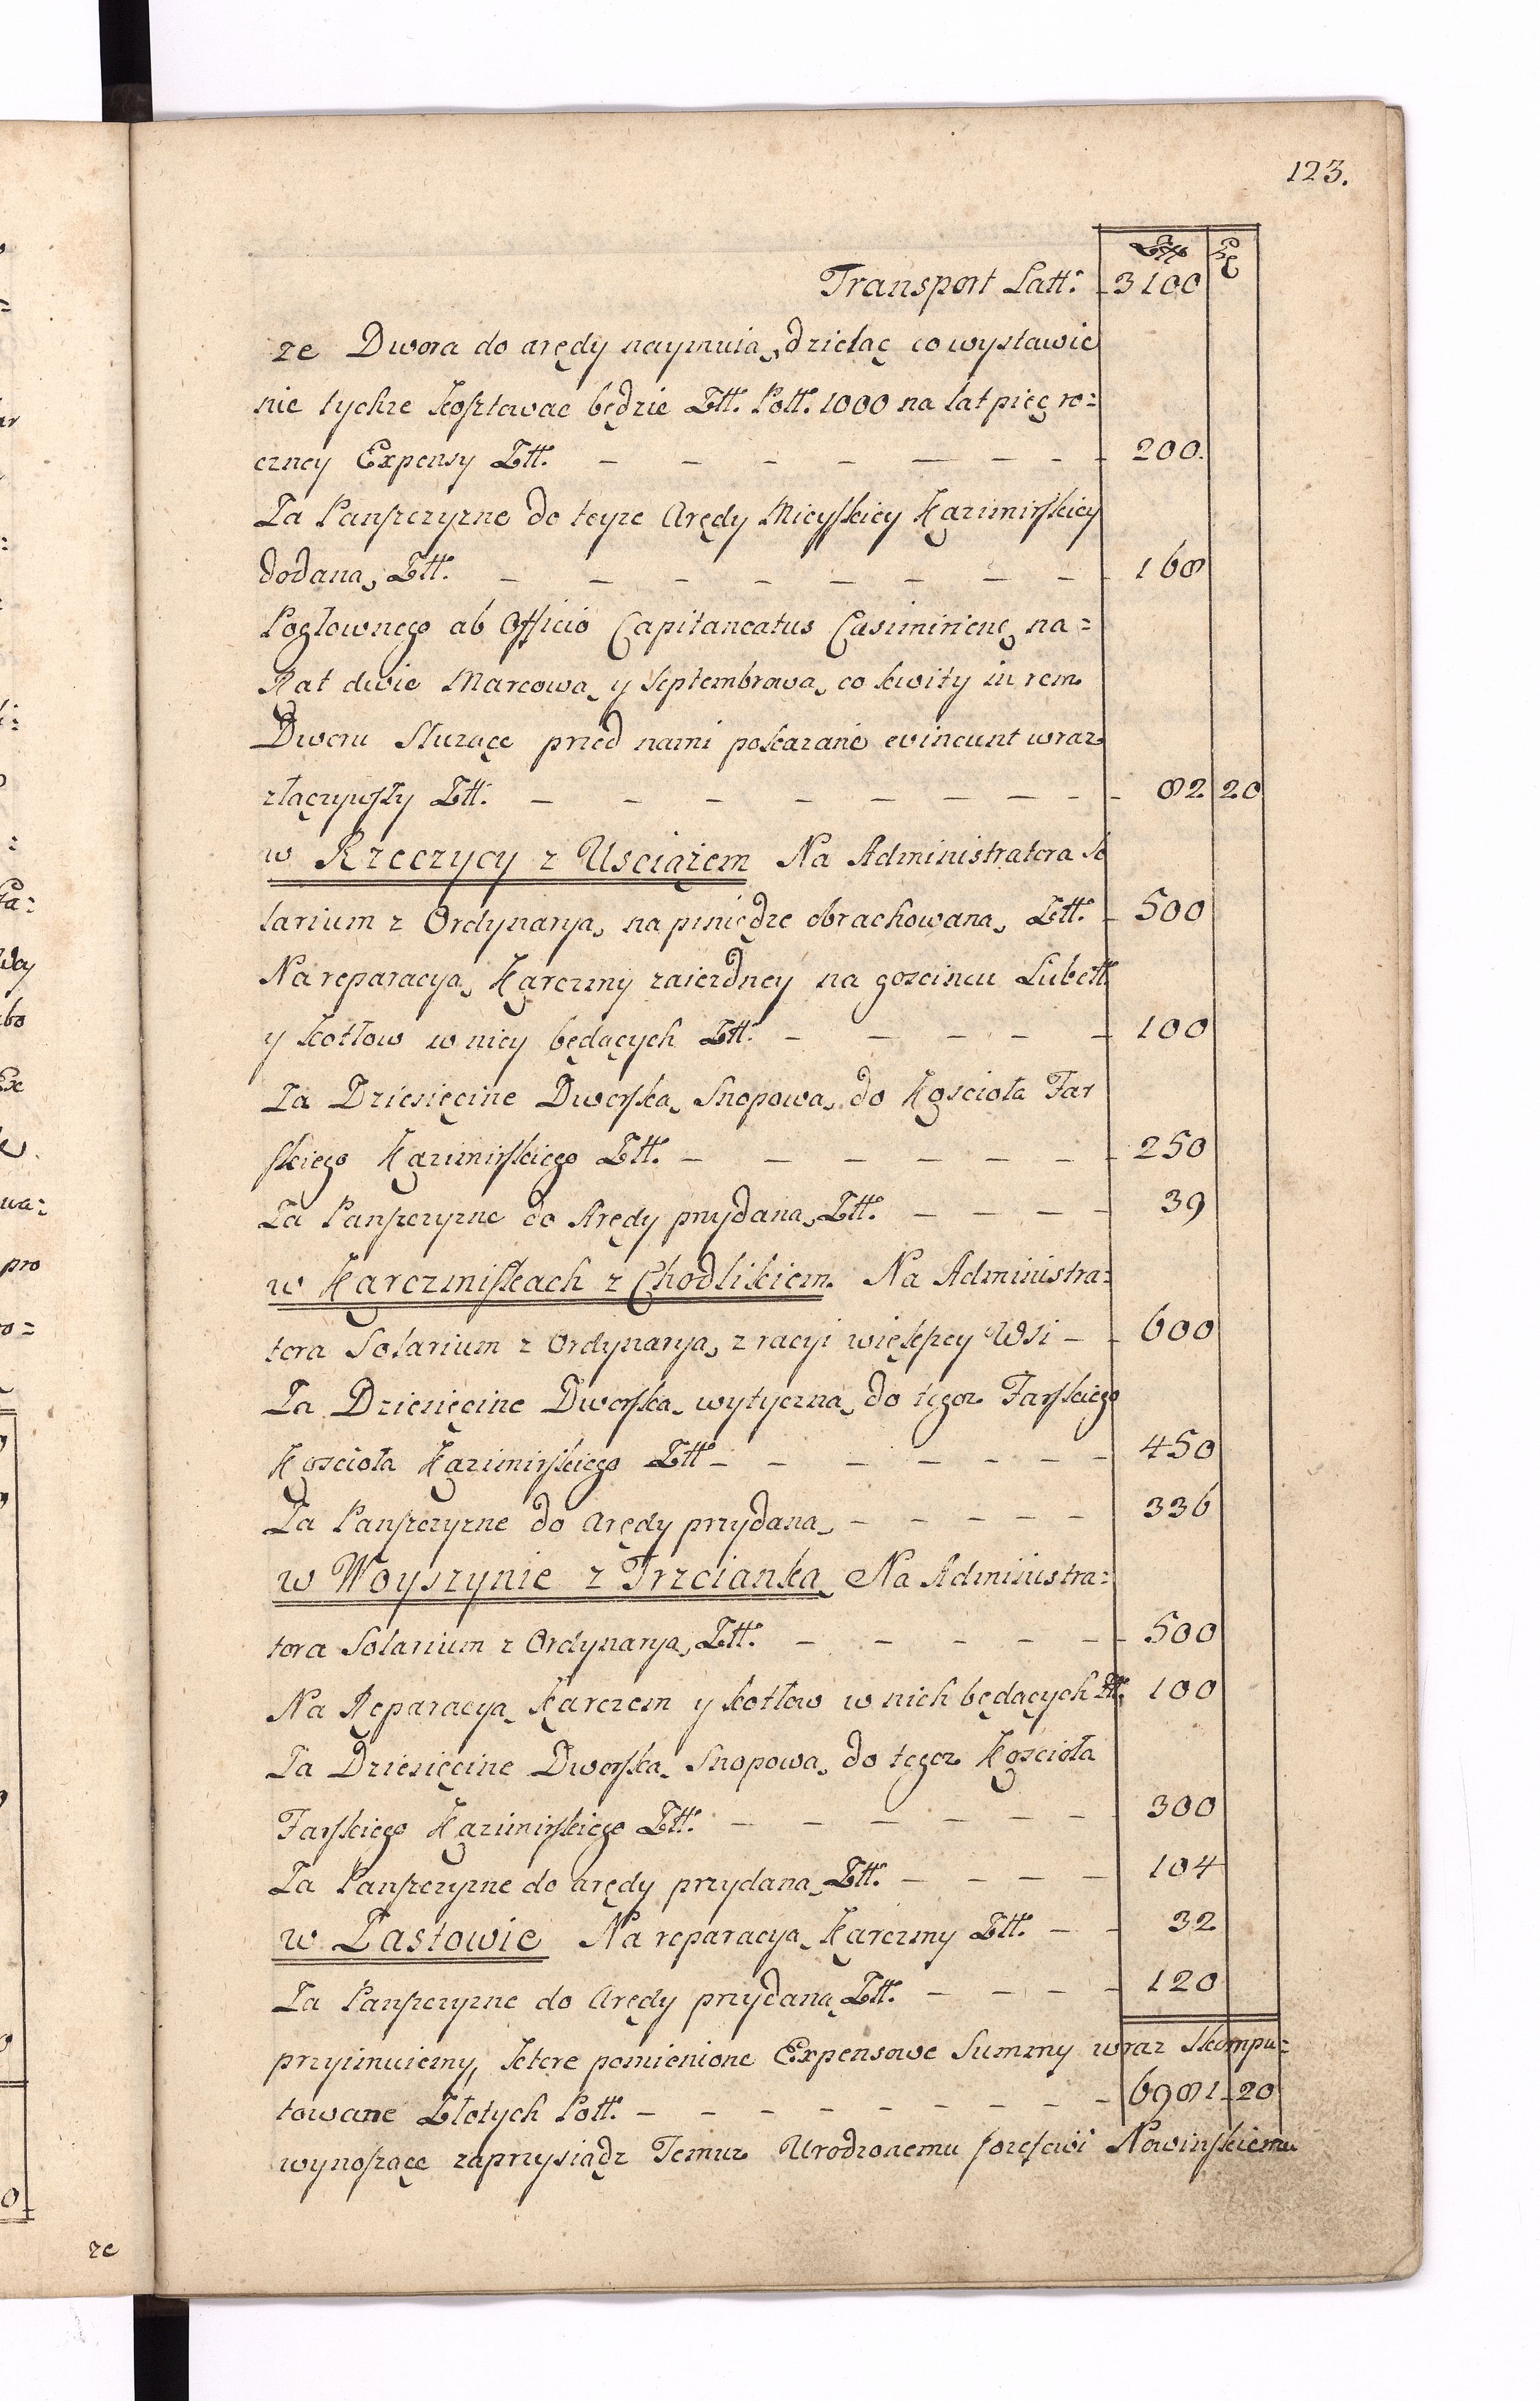 123.
Złł gr
Transport Latt: 3100
ze Dwora do arędy naymuią, dzieląc co wystawie
nie tychże kosztować będzie Złł. Poll. 1000 na lat pięć ro=
czney Expensy Złł. — — — — — — — 200.
Za Panszczyzne do teyże Arędy Mieyskiey Kazimirskiey
dodaną, Złł. — — — — — — — — 168
Pogłownego ab Officio Capitaneatus Casimirienę na=
Rat dwie Marcową y Septembrową, co kwity in rem
Dworu Służące przed nami pokazane evincunt wraz
złączywszy Złł. — — — — — — — — 82 20
w Rzeczycy z Usciążem Na Administratora So
larium z Ordynaryą, na pieniędze obrachowaną, Złł. 500
Na reparacyą, Karczmy zaiezdney na goscincu Lubelł
y kotłow w niey będących Złł. — — — — — 100
Za Dziesięcine Dworską Snopową, do Koscioła Far
skiego Kazimirskiego Złł. — — — — — — 250
Za Panszczyzne do Arędy przydaną, Złł. — — — — 39
w Karczmiskach z Chodlikiem. Na Administra=
tora Solarium z Ordynaryą, z racyi większey Wsi — 600
Za Dziesięcine Dworską wytyczną, do tegoz Farskiego
Koscioła Kazimirskiego Złł — — — — — — 450
Za Panszczyzne do Arędy przydaną — — — — — 336
w Woyszynie z Trzcianką Na Administra=
tora Solarium z Ordynaryą, Złł. — — — — — 500
Na Reparacyą Karczem y kotłow w nich będących Złł. 100
Za Dziesięcine Dworską Snopową, do tegoz Koscioła
Farskiego Kazimirskiego Złł. — — — — — 300
Za Panszczyzne do arędy przydaną, Złł. — — — — 104
w Zastowie Na reparacyą Karczmy Złł. — — 32
Za Panszczyzne do Arędy przydaną Złł. — — — — 120
przyimuiemy, ktore pomienione Expensowe Summy wraz skompu=
towane Złotych Poll. — — — — — — — — 6981 20
wynoszące zaprzysiądz Temuz Urodzonemu Jozefowi Nowinskiemu
ze